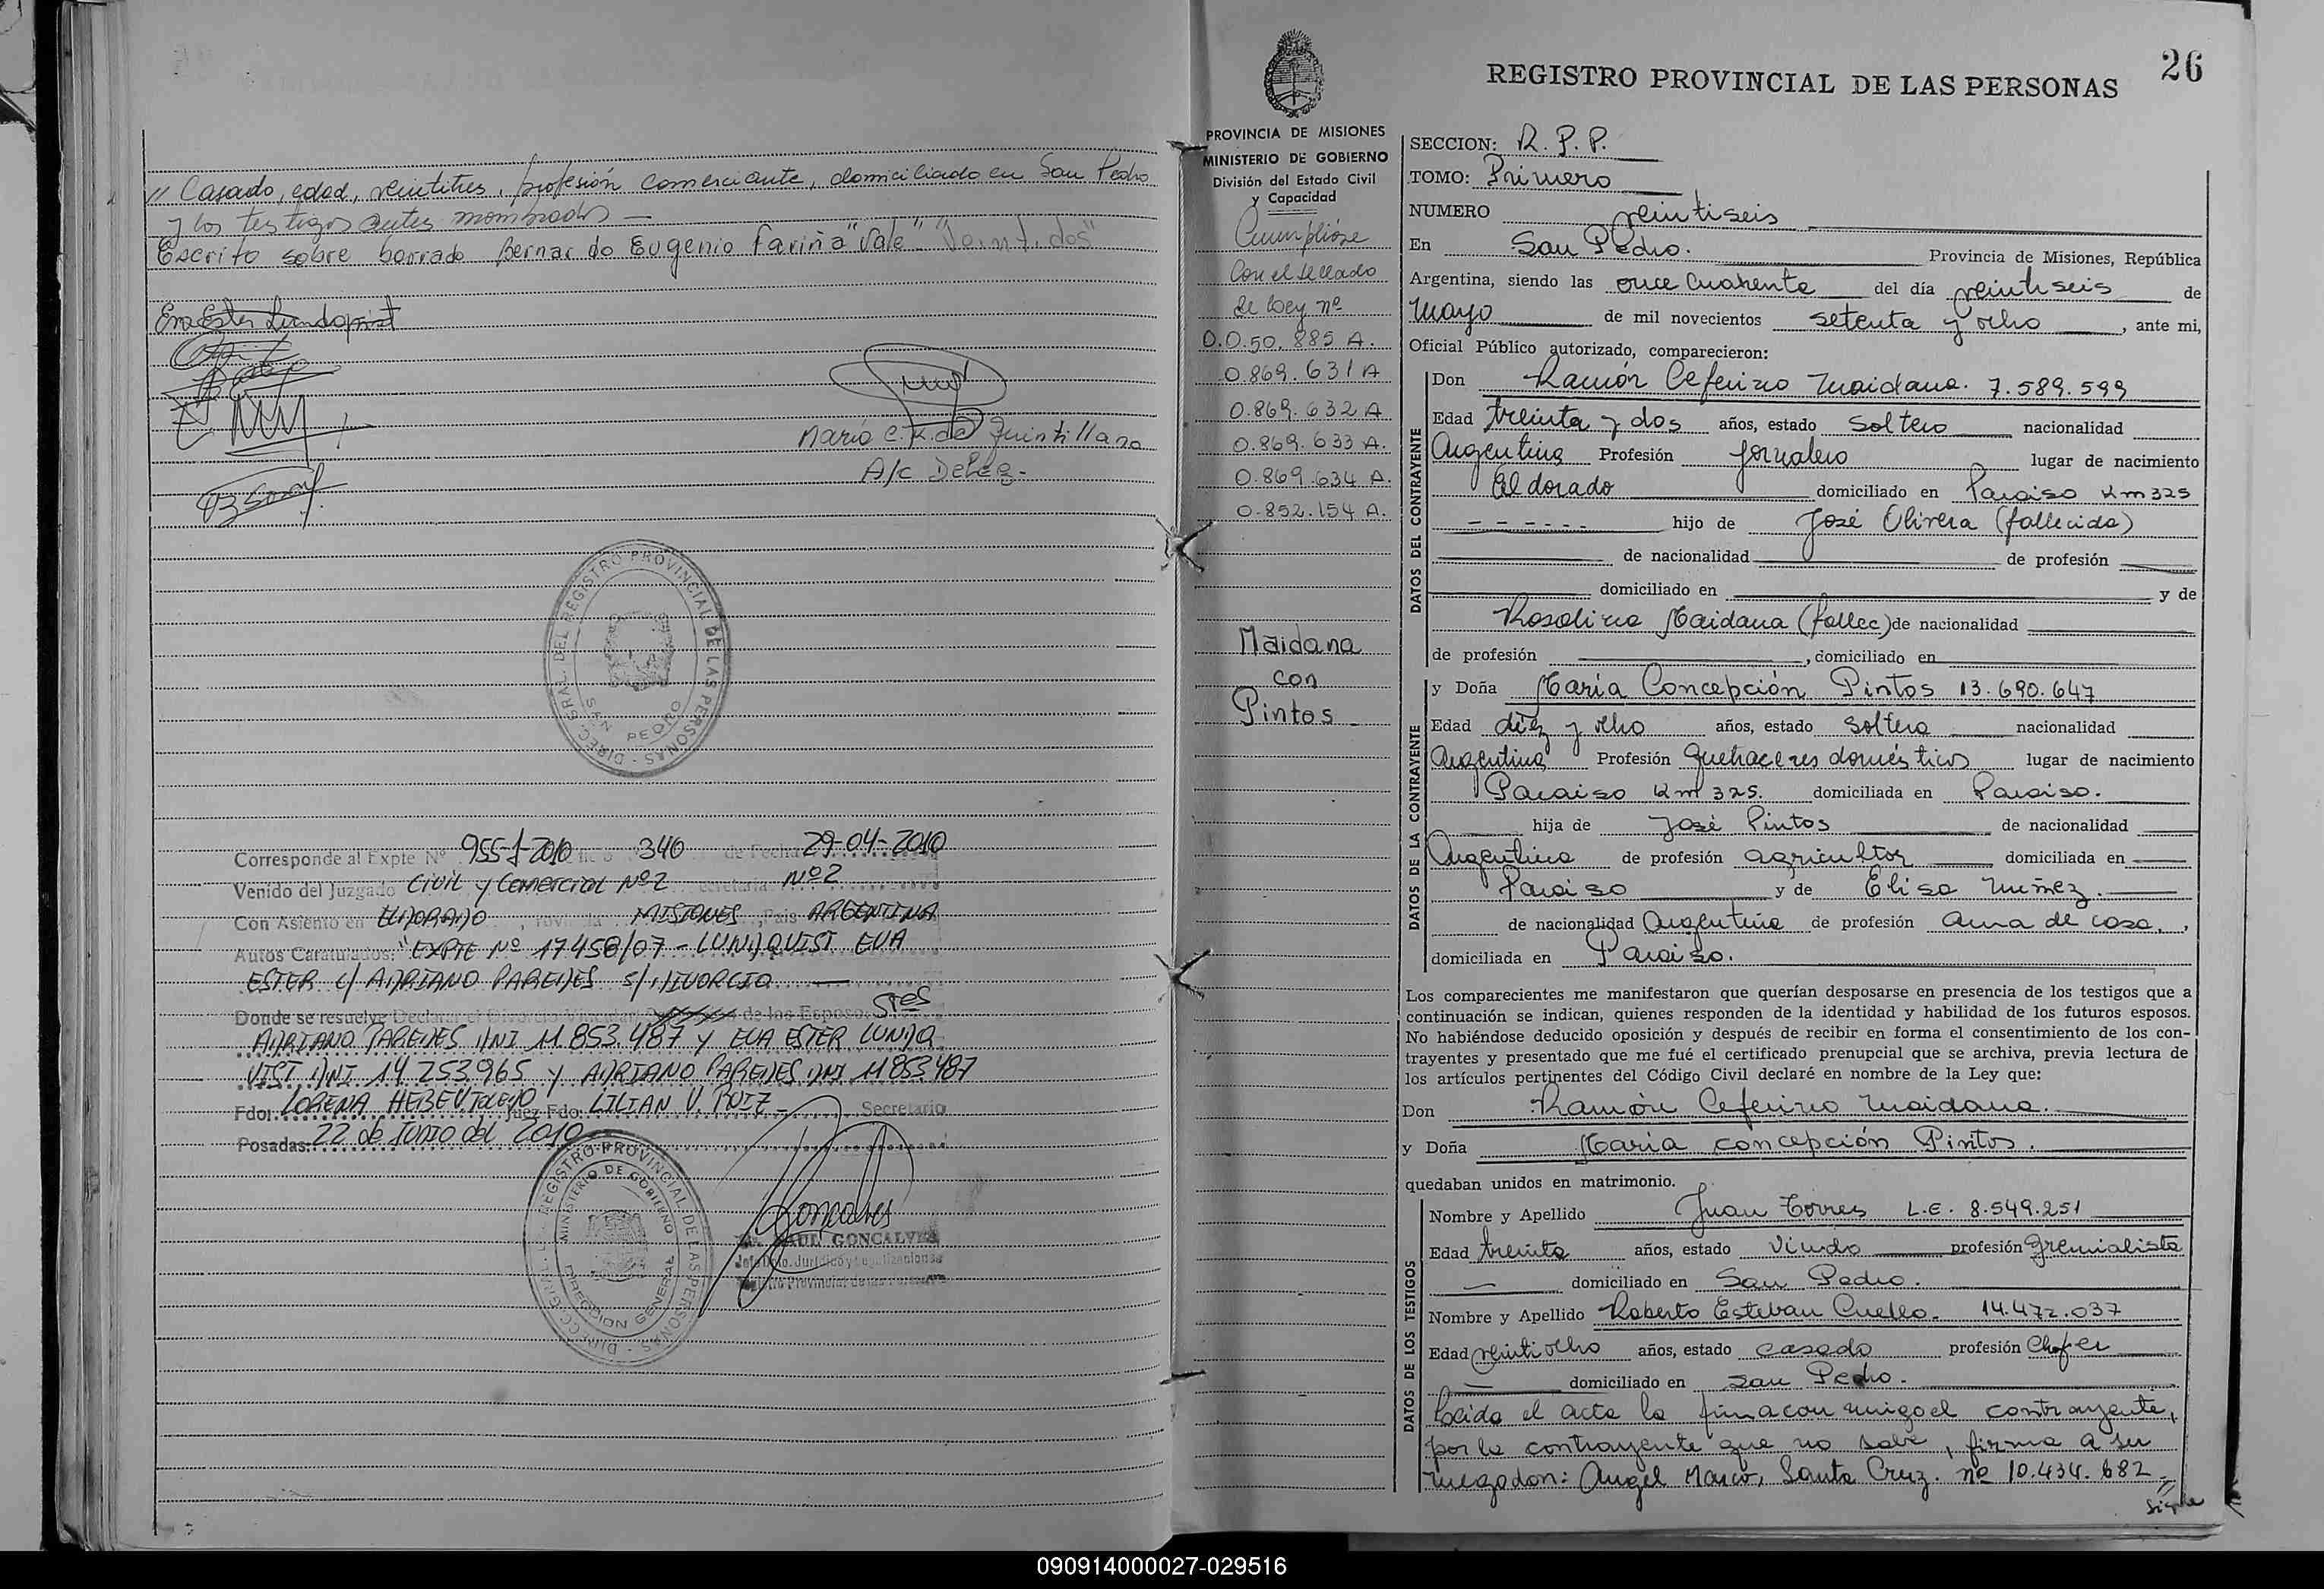 // Casado, edad, veintitres, profesión comerciante, domiciliado en San Pedro
y los testigos antes nombrados —
Escrito sobre borrado Bernardo Eugenio Fariña "Vale"
Eva Ester Lundqvist
Mario C. K. de Quintillana
A/c Deleg-
DIREC. GRAL. DEL REGISTRO PROVINCIAL DE LAS PERSONAS
SAN PEDRO
Corresponde al Expte Nº 955-1-2010 340 de Fecha 29-04-2010
Venido del Juzgado Civil y Comercial Nº2 Secretaria Nº2
Con Asiento en ELDORADO, Provincia MISIONES, Pais ARGENTINA
Autos Caratulados: "EXPTE Nº 17458/07 - LUNDQUIST EVA
ESTER c/ ADRIANO PAREDES s/ DIVORCIO —
Donde se resuelve Declarar el Divorcio Vincular de los Esposos Sres
ADRIANO PAREDES DNI 11.853.487 y EVA ESTER LUNDQ
VIST, DNI 14.253965 y ADRIANO PAREDES DNI 11853487
Fdo: LORENA HEBE V. TOLEDO Juez Fdo: LILIAN V. RUIZ - Secretario
Posadas: 22 de Junio del 2010
DIRECC. GRAL. REGISTRO PROVINCIAL DE LAS PERSONAS
MINISTERIO DE GOBIERNO
DIRECCION GENERAL
Goncalves
RAUL GONCALVES
Jefe Dpto. Jurídico y Legalizaciones
Registro Provincial de las Personas
26
REGISTRO PROVINCIAL DE LAS PERSONAS
PROVINCIA DE MISIONES
MINISTERIO DE GOBIERNO
División del Estado Civil
y Capacidad
Cumpliose
Con el sellado
de Ley nº
0.050.885 A.
0.869.631 A
0.869.632 A
0.869.633 A.
0.869.634 A.
0.852.154 A.
Maidana
con
Pintos -
SECCION: R. P. P.
TOMO: Primero
NUMERO veintiseis
En San Pedro. Provincia de Misiones, República
Argentina, siendo las once cuarenta del día veintiseis de
Mayo de mil novecientos setenta y ocho, ante mi,
Oficial Público autorizado, comparecieron:
DATOS DEL CONTRAYENTE
Don Ramón Ceferino Maidana. 7.589.599
Edad treinta y dos años, estado soltero nacionalidad
Argentina Profesión Jornalero lugar de nacimiento
Eldorado domiciliado en Paraiso Km 325
- - - - - - hijo de José Olivera (fallecido)
de nacionalidad de profesión
domiciliado en y de
Rosalina Maidana (fallec) de nacionalidad
de profesión , domiciliado en
DATOS DE LA CONTRAYENTE
y Doña María Concepción Pintos 13.690.647
Edad diez y ocho años, estado soltera nacionalidad
Argentina Profesión Quehaceres domésticos lugar de nacimiento
Paraiso Km 325. domiciliada en Paraiso.
hija de José Pintos de nacionalidad
Argentina de profesión agricultor domiciliada en
Paraiso y de Elisa Nuñez.
de nacionalidad Argentina de profesión ama de casa.,
domiciliada en Paraiso.
Los comparecientes me manifestaron que querían desposarse en presencia de los testigos que a
continuación se indican, quienes responden de la identidad y habilidad de los futuros esposos.
No habiéndose deducido oposición y después de recibir en forma el consentimiento de los con-
trayentes y presentado que me fué el certificado prenupcial que se archiva, previa lectura de
los artículos pertinentes del Código Civil declaré en nombre de la Ley que:
Don Ramón Ceferino Maidana.
y Doña María Concepción Pintos.
quedaban unidos en matrimonio.
DATOS DE LOS TESTIGOS
Nombre y Apellido Juan Torres L.E. 8.549.251
Edad treinta años, estado Viudo profesión Gremialista
domiciliado en San Pedro.
Nombre y Apellido Roberto Esteban Cuello. 14.472.037
Edad veintiocho años, estado casado profesión Chofer
domiciliado en San Pedro.
Leida el acta la firma con migo el contrayente,
por la contrayente que no sabe, firma a su
ruego don: Angel Marco, Santa Cruz. nº 10.434.682 -
// Sigue
090914000027-029516